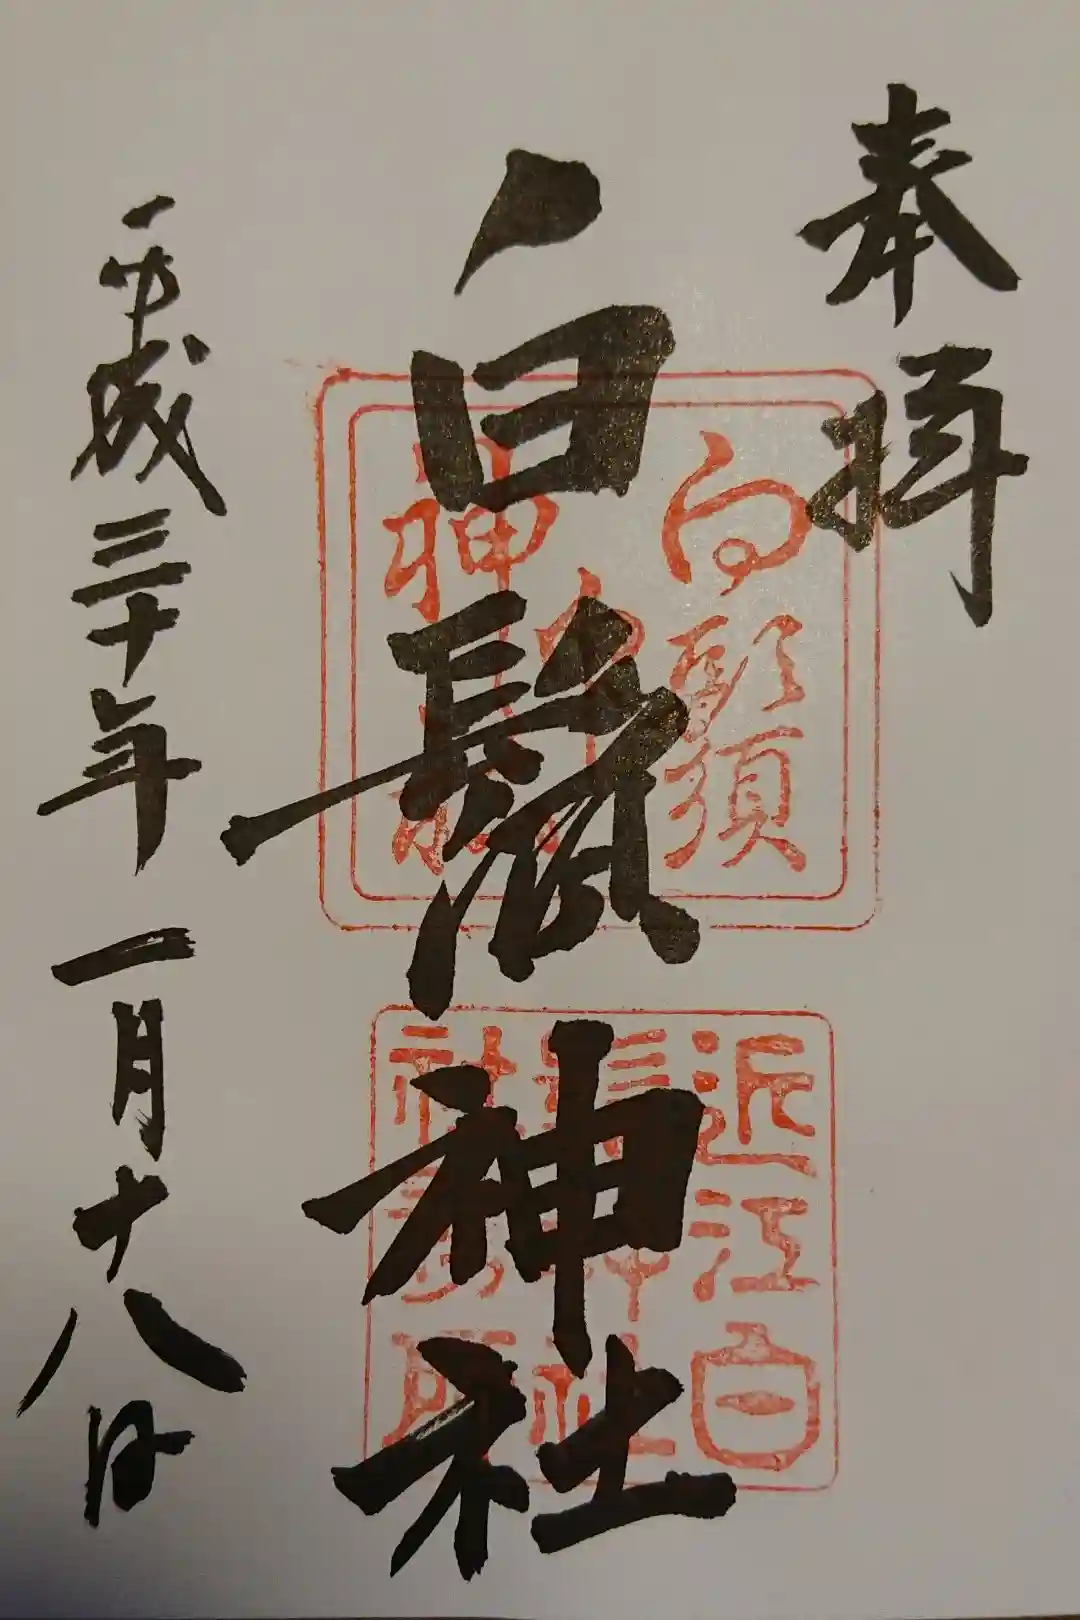 奉拝
白鬚神社
平成三十年一月十八日
近江白
鬚神社
社務所